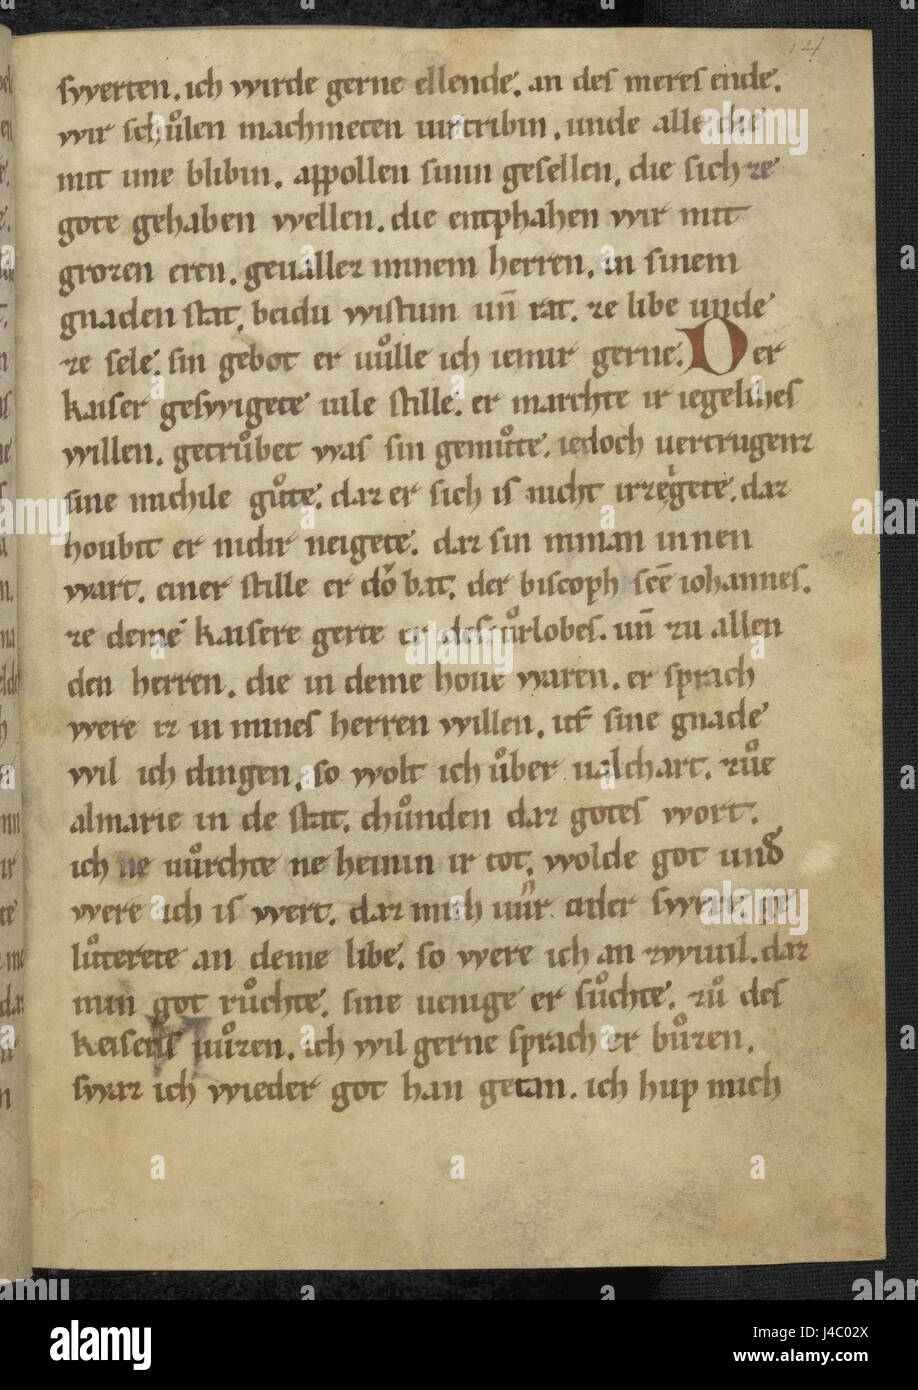 14
swerten. ich wirde gerne ellende. an des meres ende.
wir schůlen machmeten uirtribin. unde alle die
mit ime blibin. appollen sinin gesellen. die sich ze
gote gehaben wellen. die entphahen wir mit
grozen eren. geuallez minem herren. in sinem
gnaden stat. beidu wistum un̄ rat. ze libe unde
ze sele. sin gebot er uůlle ich iemir gerne. Der
kaiser geswigete uile stille. er marchte ir iegeliches
willen. getrůbet was sin gemůte. iedoch uertrugenz
sine michile gůte. daz er sich is nicht irzeigete. daz
houbit er nidir neigete. daz sin niman innen
wart. einer stille er dŏ bat. der biscoph scē iohannes.
ze deme kaisere gerte er des ůrlobes. un̄ zu allen
den herren. die in deme houe waren. er sprach
were iz in mines herren willen. uf sine gnade
wil ich dingen. so wolt ich ůber ualchart. zůe
almarie in de stat. chůnden daz gotes wort.
ich ne uůrchte ne heinin ir tot. wolde got und
were ich is wert. daz mich uůr oder swert. ge
lůterete an deme libe. so were ich an zwiuil. daz
min got růchte. sine uenige er sůchte. zů des
keiseris uůzen. ich wil gerne sprach er bůzen.
swaz ich wieder got han getan. ich hup mich
alamy
Image ID: J4C02X
www.alamy.com